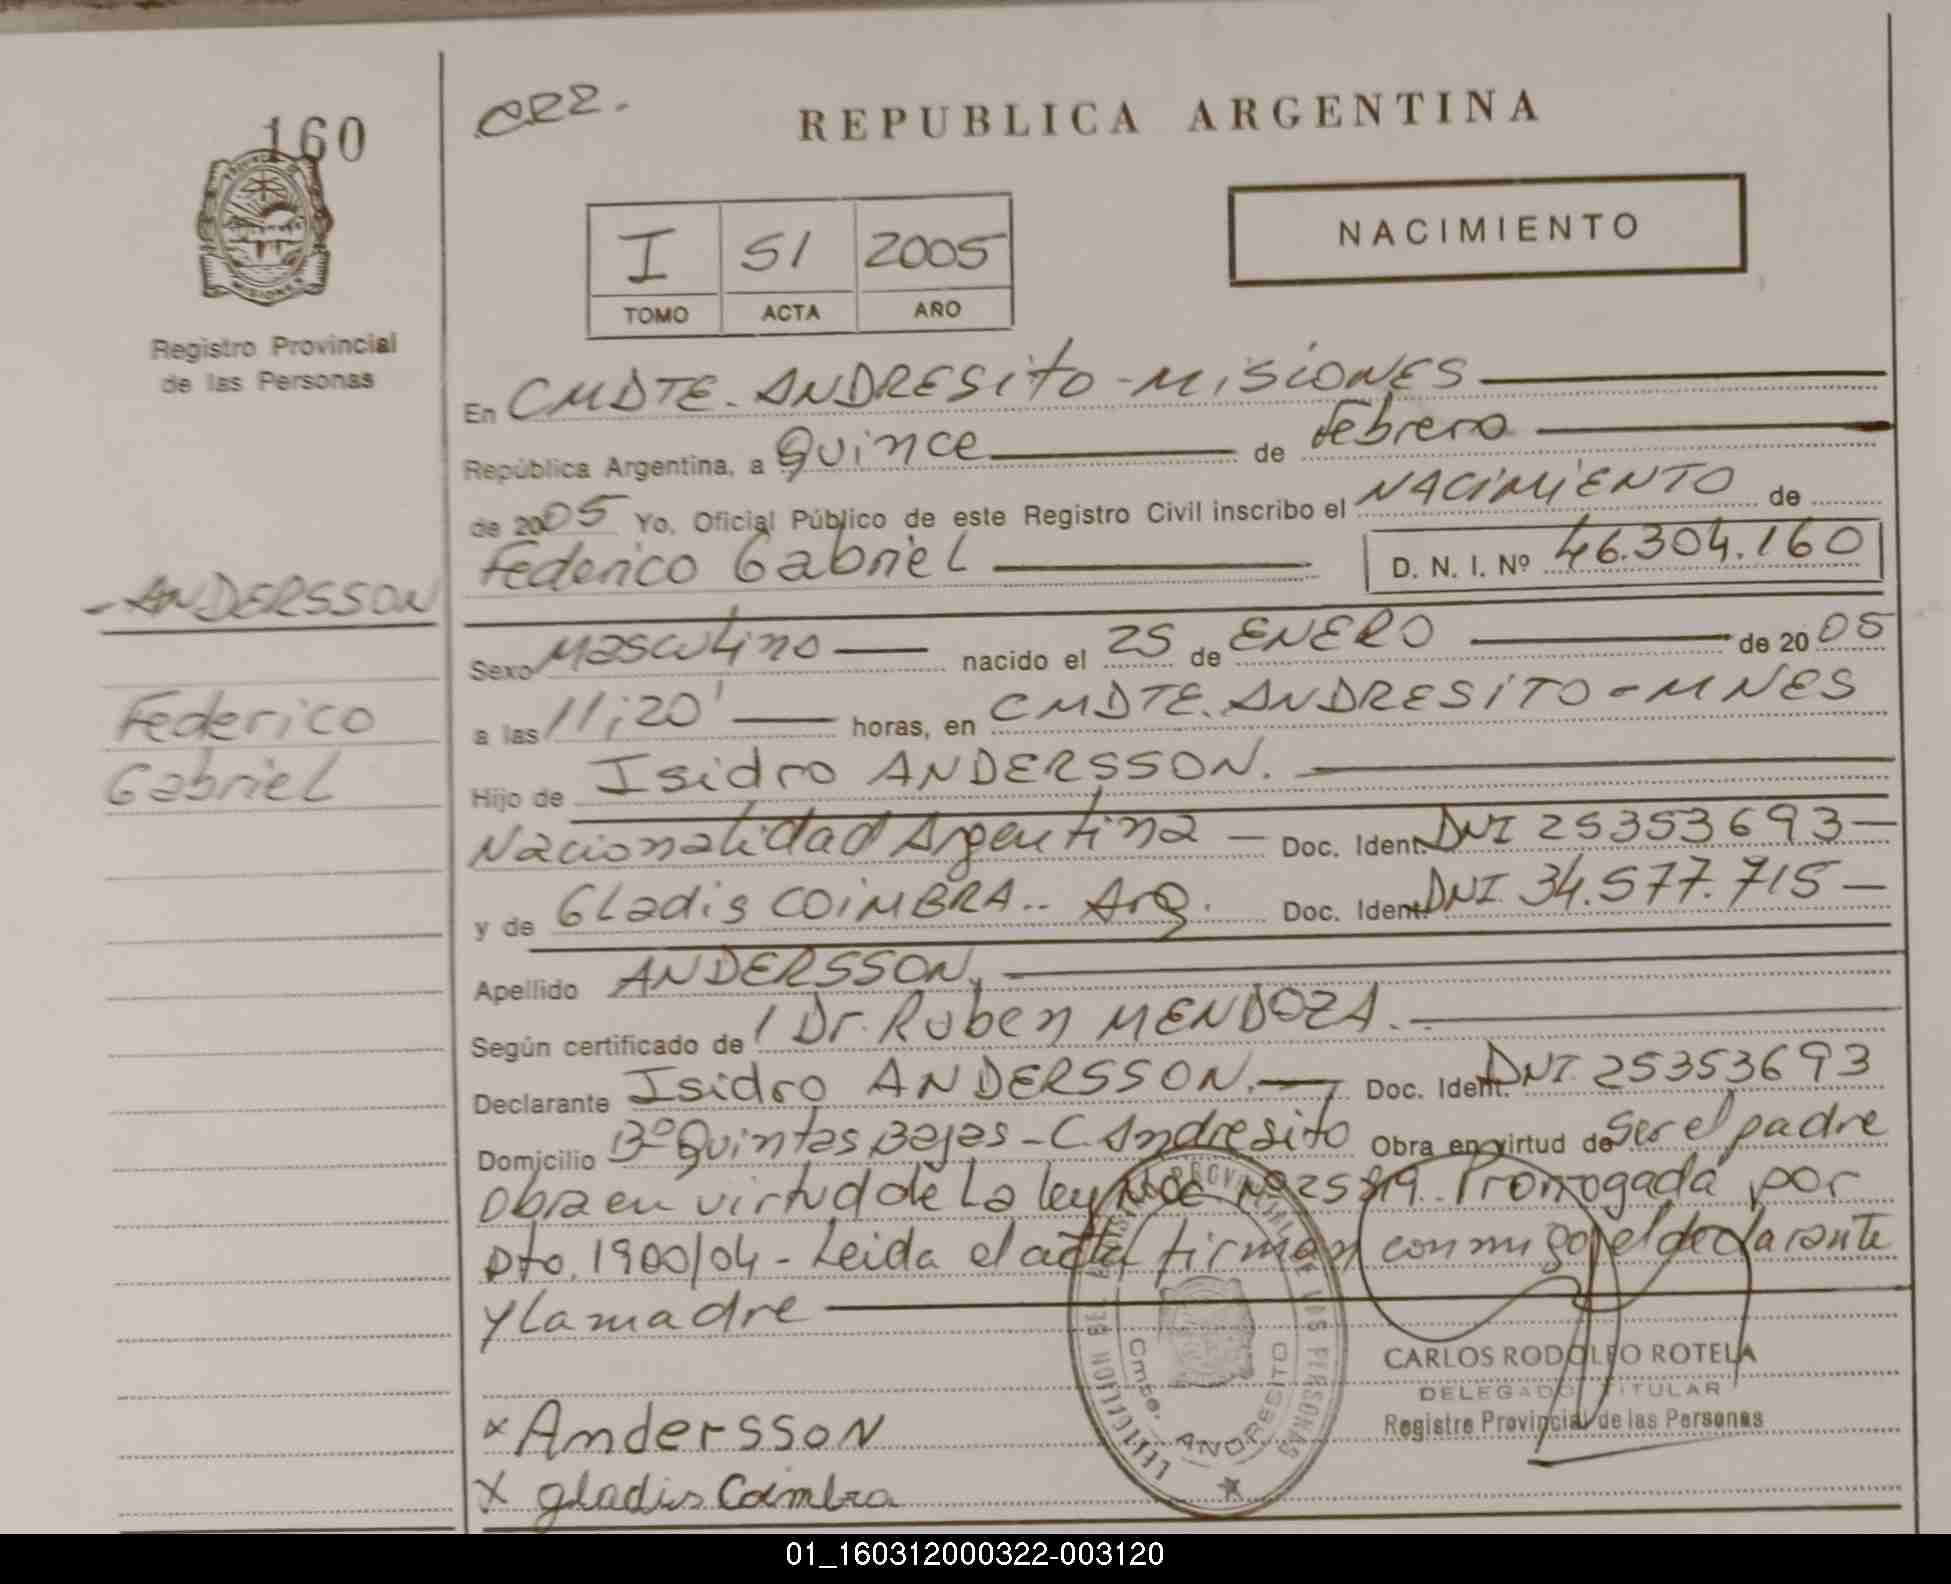 160
CRR.
REPUBLICA ARGENTINA
NACIMIENTO
I 51 2005
TOMO ACTA AÑO
Registro Provincial
de las Personas
MISIONES
En CMDTE. ANDRESITO - MISIONES
República Argentina, a Quince de Febrero
de 2005 Yo, Oficial Público de este Registro Civil inscribo el NACIMIENTO de
Federico Gabriel D. N. I. Nº 46.304.160
- ANDERSSON
Federico
Gabriel
Sexo Masculino nacido el 25 de ENERO de 2005
a las 11;20' horas, en CMDTE. ANDRESITO - MNES
Hijo de Isidro ANDERSSON.
Nacionalidad Argentina - Doc. Ident. DNI 25353693 -
y de Gladis COIMBRA.. Arg. Doc. Ident. DNI 34.577.715 -
Apellido ANDERSSON.
Según certificado de Dr. Ruben MENDOZA.
Declarante Isidro ANDERSSON. Doc. Ident. DNI 25353693
Domicilio Bº Quintas Bajas - C. Andresito Obra en virtud de Ser el padre
Obra en virtud de La ley Nº Prorrogada por
Dto. 1900/04 - Leida el acta firman conmigo el declarante
y La madre
x Andersson
X gladis Coimbra
DELEGACION DEL REGISTRO PROVINCIAL DE LAS PERSONAS
Cmte. ANDRESITO
CARLOS RODOLFO ROTELA
DELEGADO TITULAR
Registro Provincial de las Personas
01_160312000322-003120